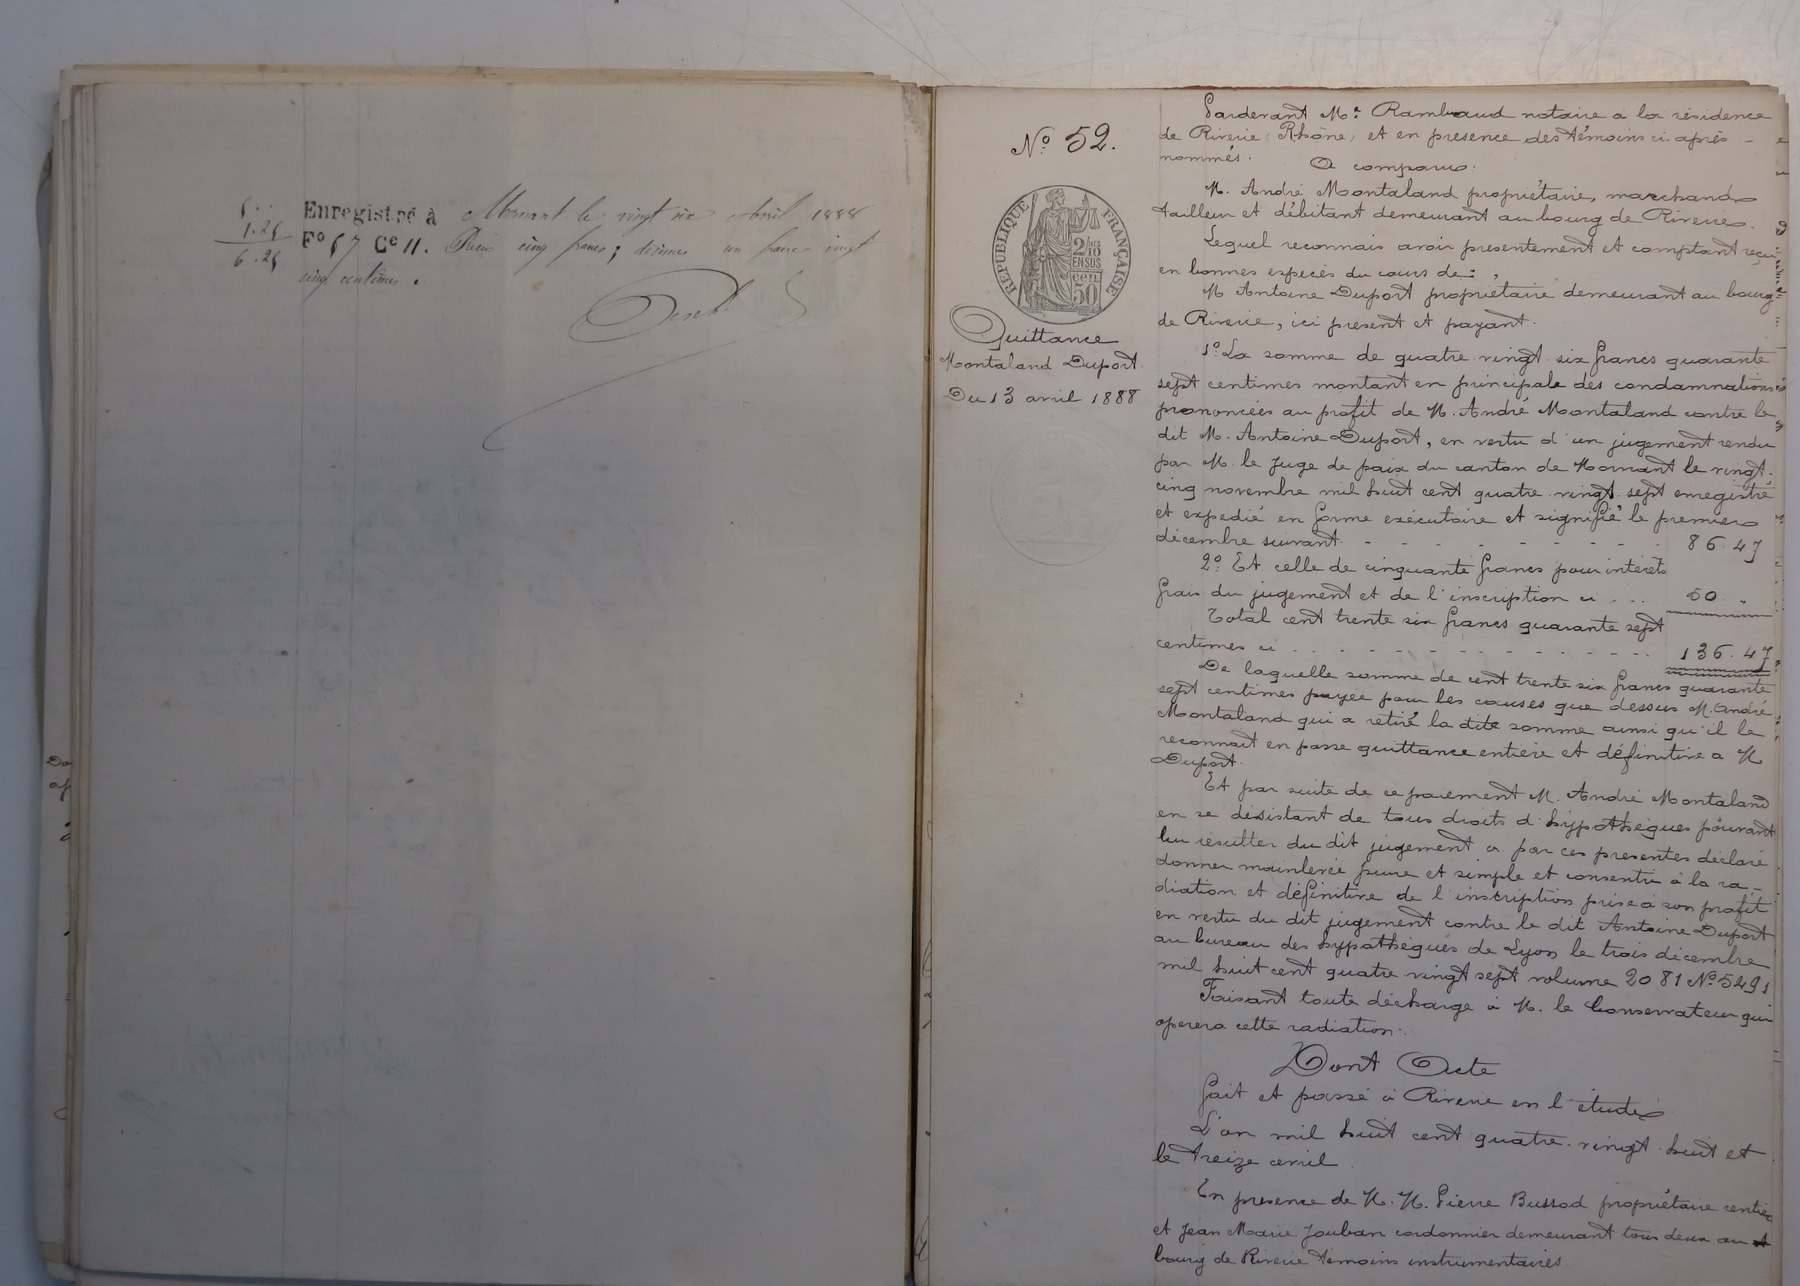 5 . .
1.25
6.25
Enregistré à Mornant le vingt six Avril 1888
F° 67 C° 11. Reçu cinq francs ; décimes un franc vingt
cinq centimes .
N° 52.
REPUBLIQUE FRANÇAISE
2/10 EN SUS
50 cen
Quittance
Montaland Duport.
Du 13 avril 1888
Pardevant Me Rambaud notaire a la résidence
de Riverie (Rhône) et en presence des témoins ci après
nommés.
A comparu.
M. André Montaland propriétaire, marchand
tailleur et débitant demeurant au bourg de Riverie.
Lequel reconnais avoir presentement et comptant reçu
en bonnes espèces du cours de :
M Antoine Duport propriétaire demeurant au bourg
de Riverie, ici présent et payant.
1° La somme de quatre vingt six francs quarante
sept centimes montant en principale des condamnations
prononcées au profit de M. André Montaland contre le
dit M. Antoine Duport, en vertu d'un jugement rendu
par M. le Juge de paix du canton de Mornant le vingt-
cinq novembre mil huit cent quatre vingt sept enregistré
et expedié en forme exécutoire et signifié le premier
décembre suivant. - - - - - - - - 86.47
2° Et celle de cinquante francs pour intérêts
frais du jugement et de l'inscription ci . . . 50 "
Total cent trente six francs quarante sept
centimes ci - - - - - - - - 136.47
De laquelle somme de cent trente six francs quarante
sept centimes payée pour les causes que dessus M. André
Montaland qui a retiré la dite somme ainsi qu'il le
reconnait en passe quittance entière et définitive a M.
Duport.
Et par suite de ce paiement M. André Montaland
en se désistant de tous droits d'hypothèques pouvant
lui résulter du dit jugement a par ces presentes déclaré
donner mainlevée pure et simple et consentir à la ra-
diation et définitive de l'inscription prise a son profit
en vertu du dit jugement contre le dit Antoine Duport
au bureau des hypothèques de Lyon le trois décembre
mil huit cent quatre vingt sept volume 2081 N° 5491
Faisant toute décharge à M. le Conservateur qui
operera cette radiation.
Dont Acte
Fait et passé à Riverie en l'étude
L'an mil huit cent quatre-vingt-huit et
le treize avril.
En presence de M. M. Pierre Bussod propriétaire rentier
et Jean Marie Jouban cordonnier demeurant tous deux au
bourg de Riverie témoins instrumentaires.